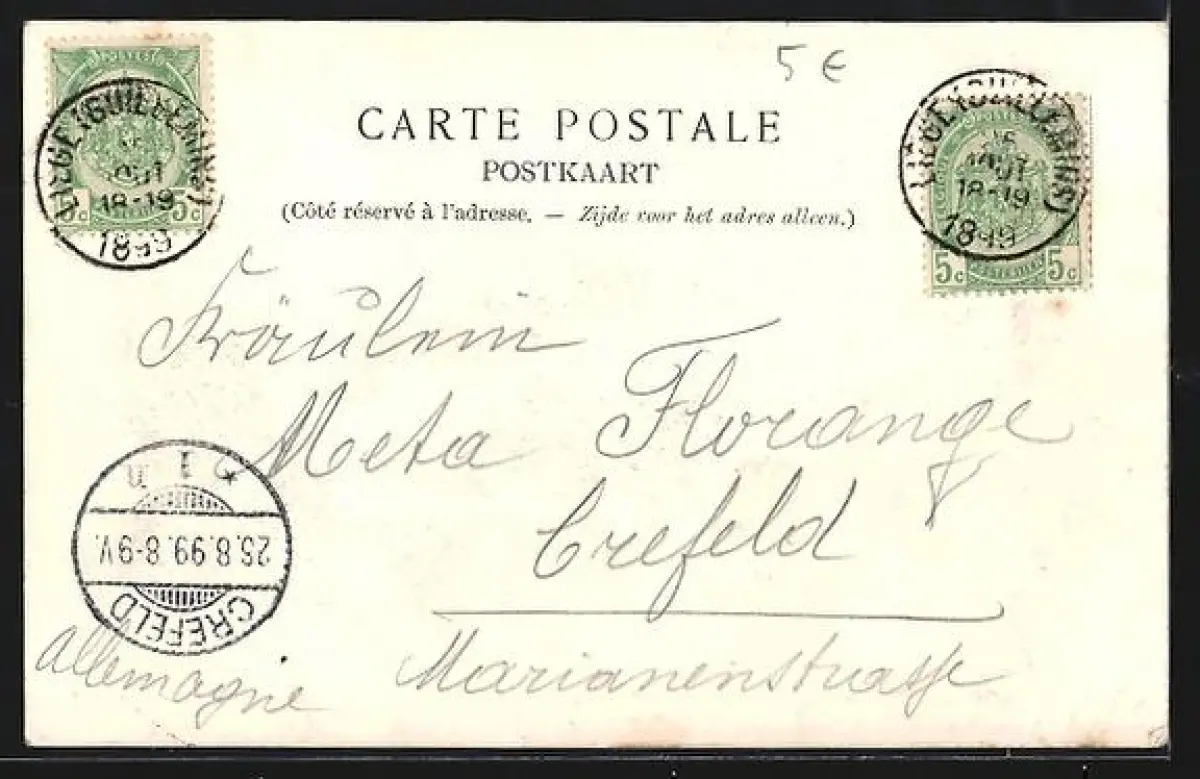 5 €
CARTE POSTALE
POSTKAART
(Côté réservé à l'adresse. — Zijde voor het adres alleen.)
LIEGE (GUILLEMINS)
AOUT
18-19
1899
5c 5c
LIEGE (GUILLEMINS)
AOUT
18-19
1899
5c 5c
Fräulein
Meta Florange
Crefeld
Marianenstrasse
Allemagne
CREFELD
8-9V.
* 1